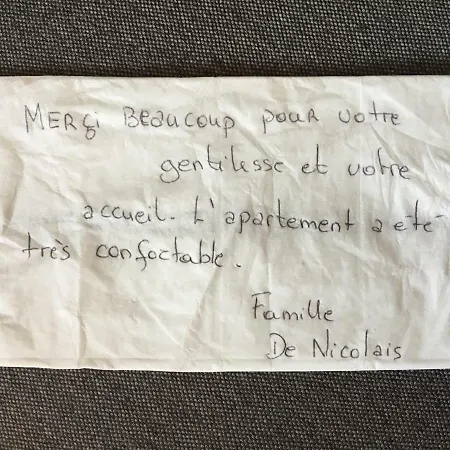 MERÇi BEAUCOUP pouR votre
gentilesse et votre
accueil. L'apartement a eté
très confortable.
Famille
De Nicolais